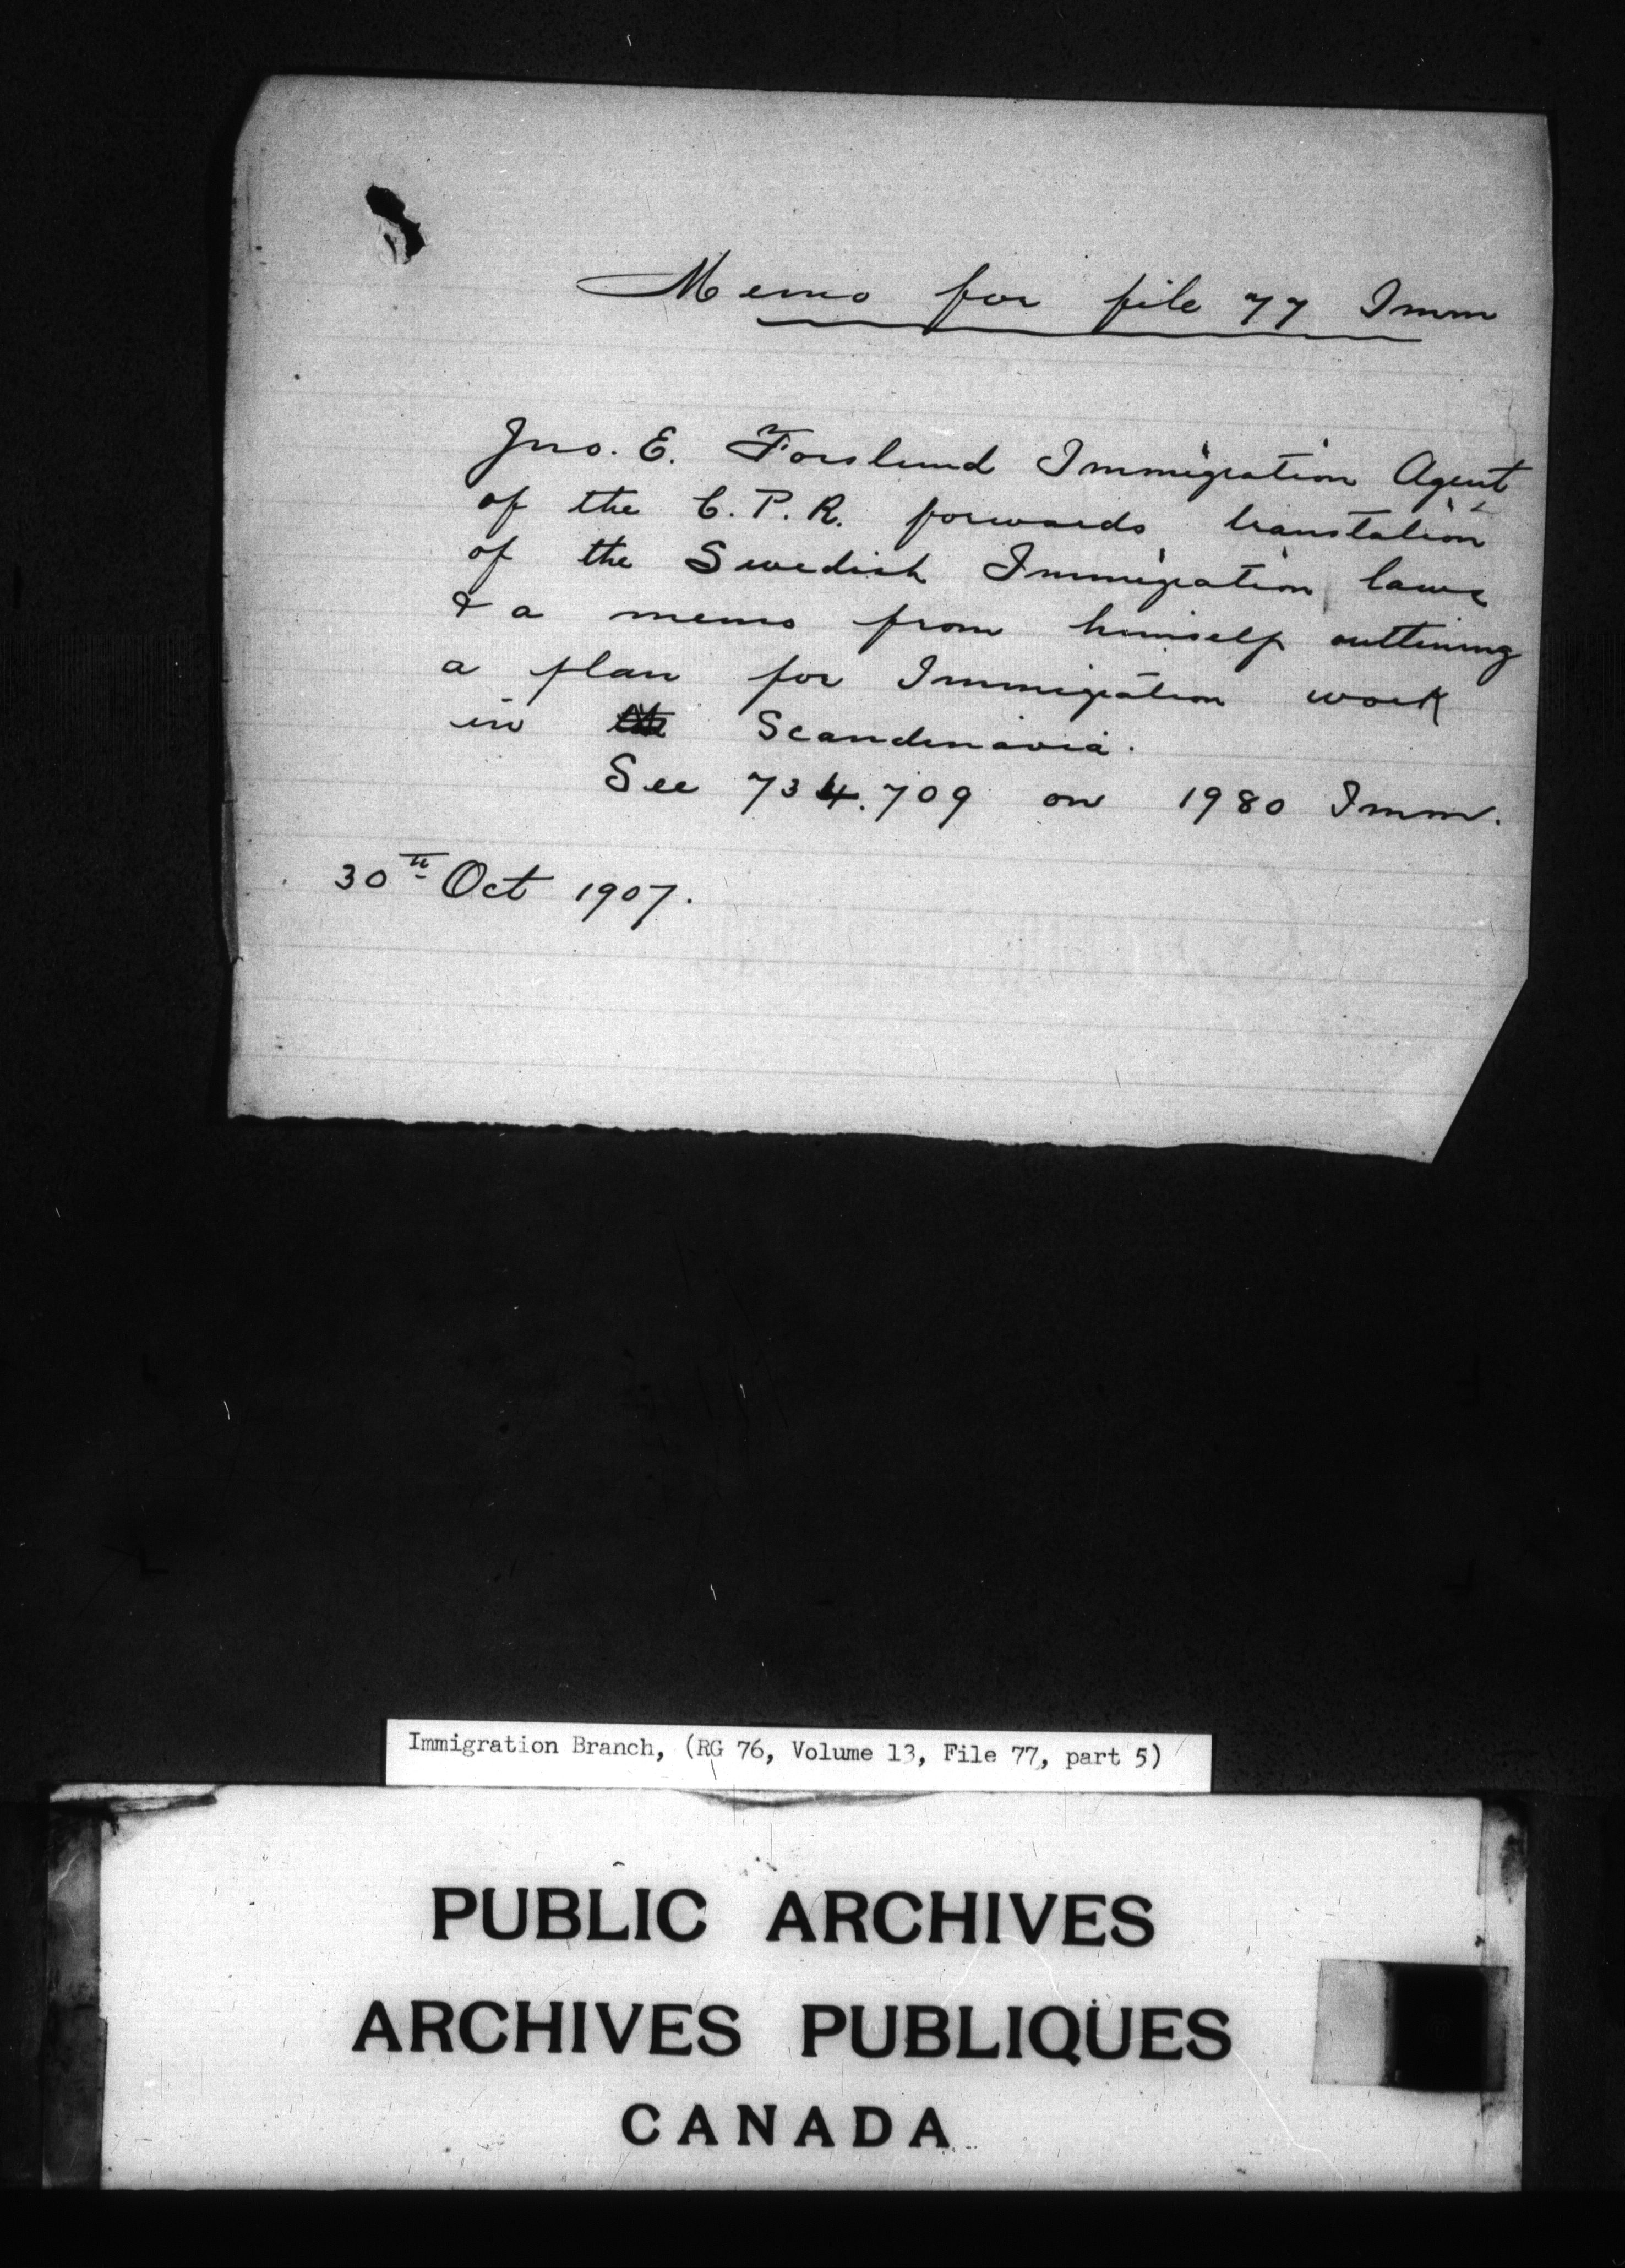 Memo for file 77 Imm
Jno. E. Forslund Immigration Agent
of the C.P.R. forwards translation
of the Swedish Immigration laws
& a memo from himself outlining
a plan for Immigration work
in Scandinavia.
See 734.709 on 1980 Imm.
30th Oct 1907.
Immigration Branch, (RG 76, Volume 13, File 77, part 5)
PUBLIC ARCHIVES
ARCHIVES PUBLIQUES
CANADA